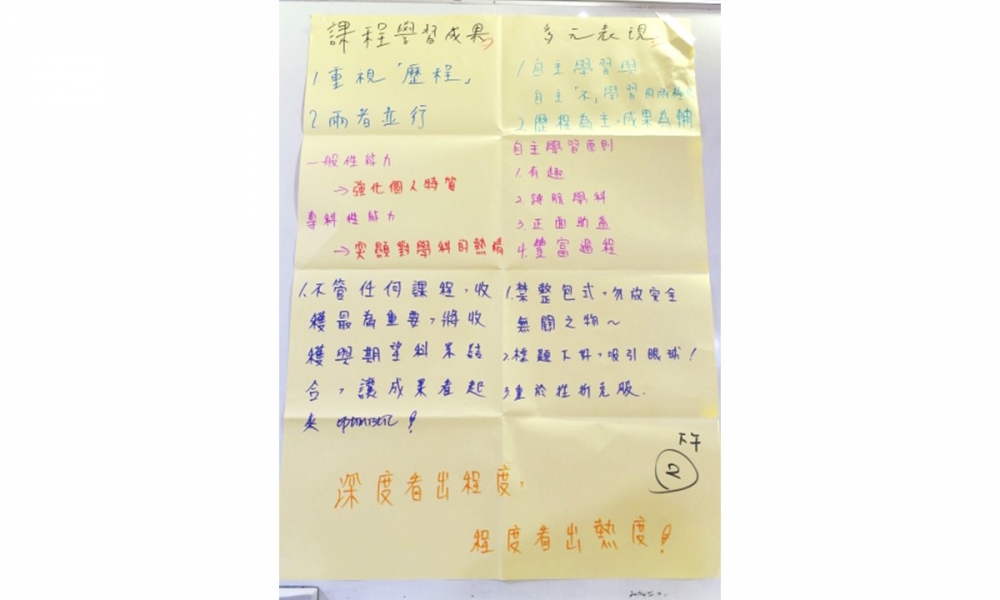 課程學習成果
1.重視「歷程」
2.兩者並行
一般性能力
→強化個人特質
專科性能力
→突顯對學科目熱情
1.不管任何課程,收
獲最為重要,將收
獲與期望科系結
合,讓成果看起
來 optimistic!
多元表現
1.自主學習與
自主「不」學習
2.歷程為主,成果為輔
自主學習原則
1.有趣
2.跳脫學科
3.正面助益
4.豐富過程
1.禁整包式,勿放完全
無關之物~
2.標題下好,吸引眼球!
3.重於挫折克服.
下午
2
深度看出程度,
程度看出熱度!